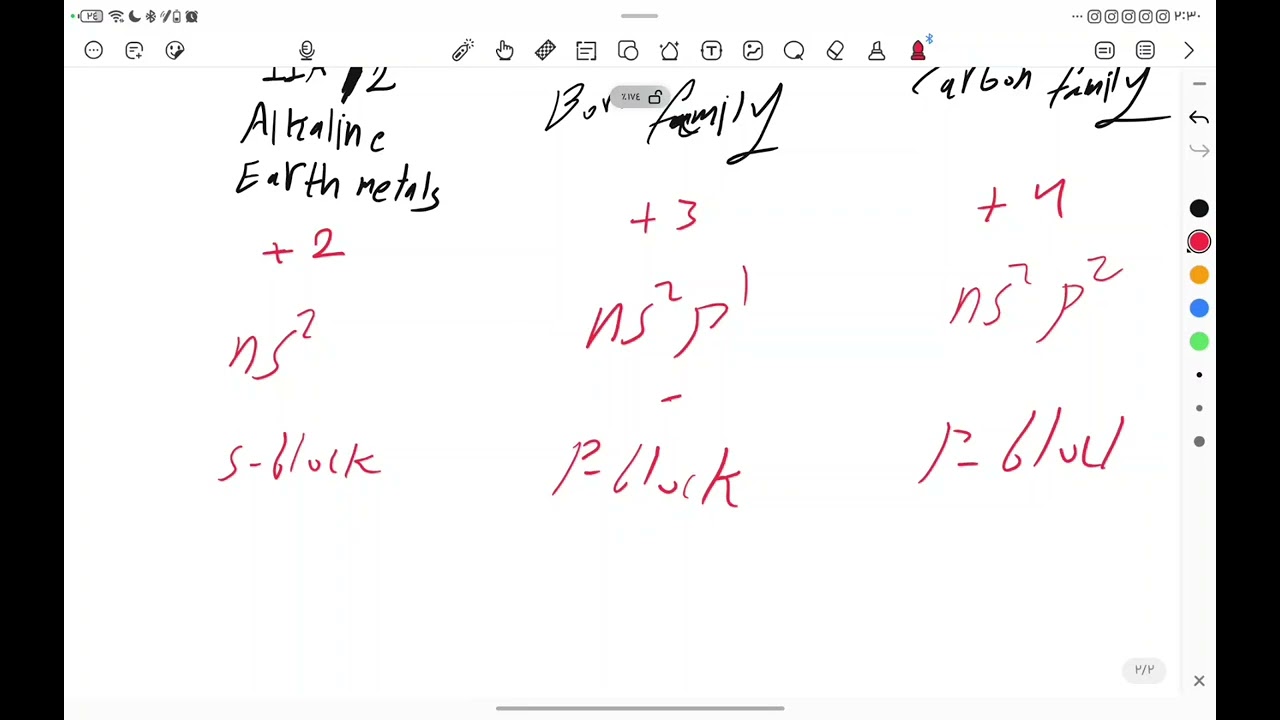 ٢٤
٢:٣٠
IIA / 2
Alkaline
Earth metals
+2
ns²
s-block
٪١٧٤
family
+3
ns²p¹
-
P-block
Carbon family
+4
ns² p²
P-block
٢/٢